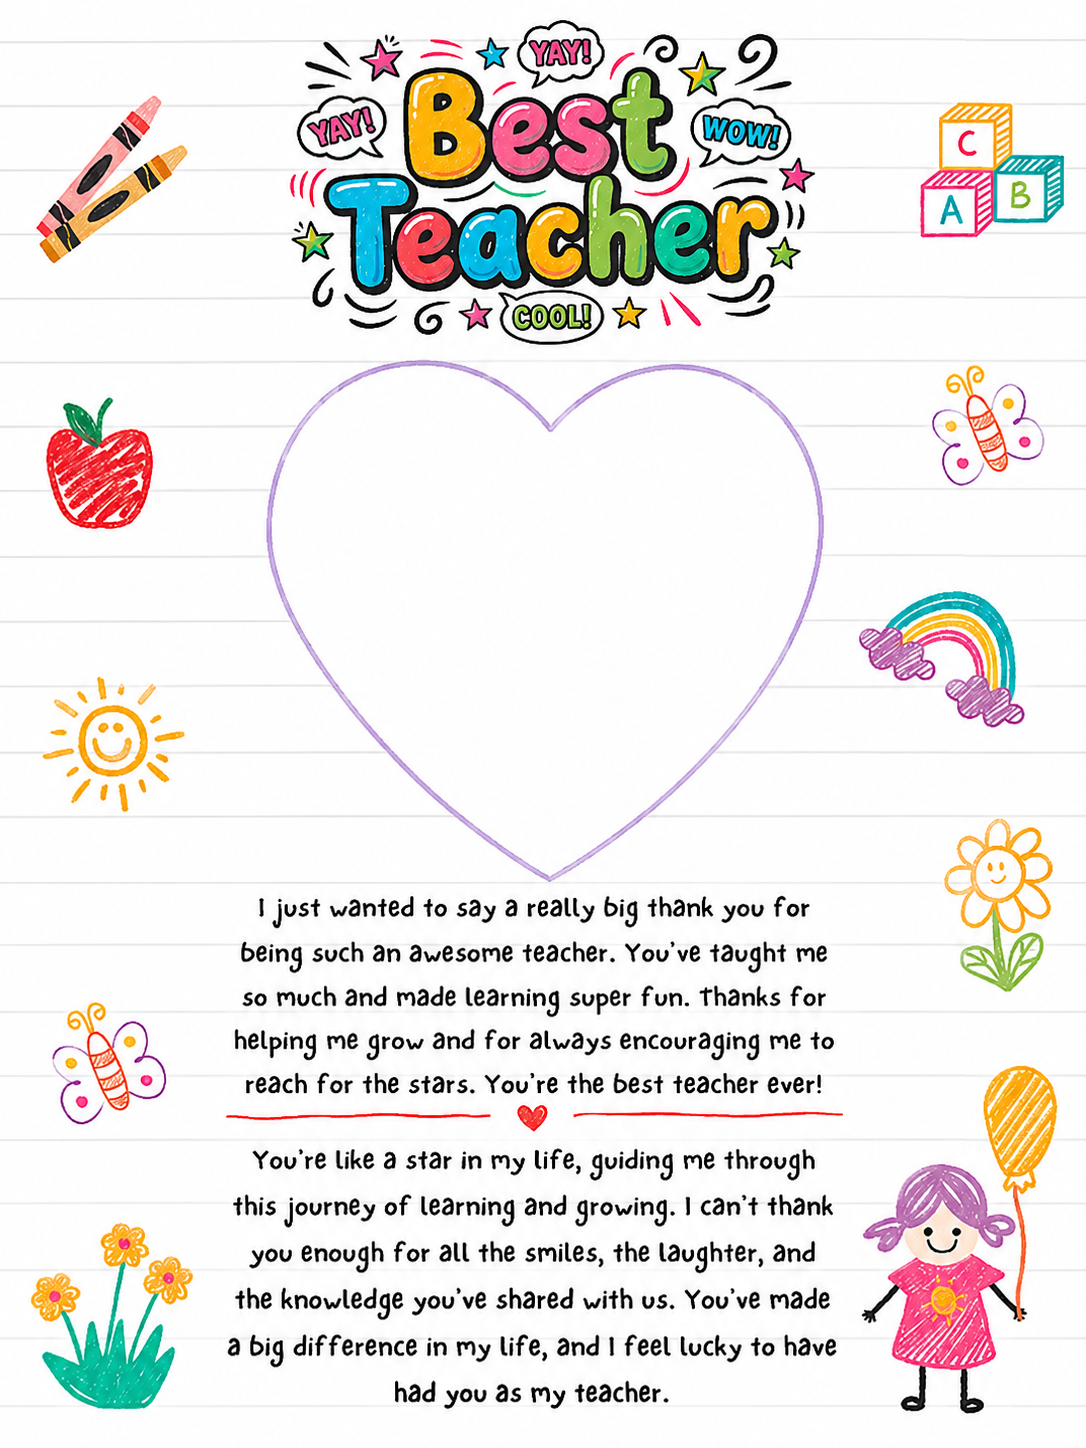 YAY!
YAY!
Best
WOW!
Teacher
COOL!
C
A B
I just wanted to say a really big thank you for
being such an awesome teacher. You've taught me
so much and made learning super fun. Thanks for
helping me grow and for always encouraging me to
reach for the stars. You're the best teacher ever!
You're like a star in my life, guiding me through
this journey of learning and growing. I can't thank
you enough for all the smiles, the laughter, and
the knowledge you've shared with us. You've made
a big difference in my life, and I feel lucky to have
had you as my teacher.